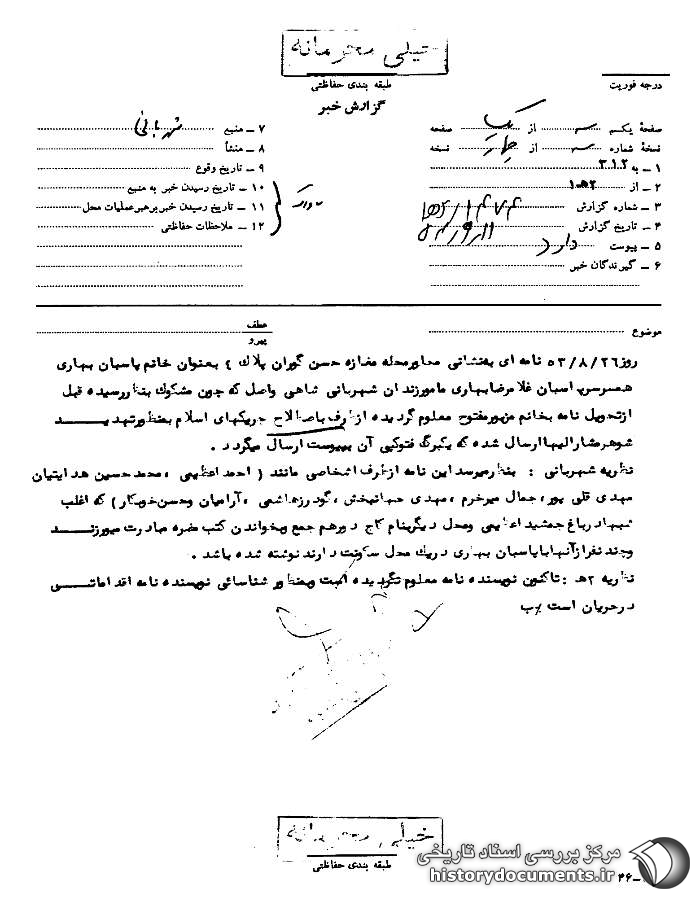 خیلی محرمانه
طبقه بندی حفاظتی
گزارش خبر
درجه فوریت
صفحهٔ یکم از یک صفحه
نسخهٔ شماره از چهار نسخه
۱ - به ۳۱۲
۲ - از ۲هـ۱
۳ - شماره گزارش
۴ - تاریخ گزارش
۵ - پیوست دارد
۶ - گیرندگان خبر
۷ - منبع شهربانی
۸ - منشأ
۹ - تاریخ وقوع
۱۰ - تاریخ رسیدن خبر به منبع
۱۱ - تاریخ رسیدن خبر برهبر عملیات محل
۱۲ - ملاحظات حفاظتی
موضوع
عطف
پیرو
روز ۵۳/۸/۲۶ نامه ای به نشانی مجاور محله مغازه حسن گوران پلاک ٤ بعنوان خانم پاسبان بهاری
همسر سرپاسبان غلامرضا بهاری مامور زندان شهربانی شاهی واصل که چون مشکوک بنظر رسیده قبل
از تحویل نامه بخانم مزبور مفتوح معلوم گردیده از طرف باصطلاح چریکهای اسلام بمنظور تهدیـــــد
شوهر مشارالیها ارسال شده که یکبرگ فتوکپی آن به پیوست ارسال میگردد .
نظریه شهربانی : بنظر میرسد این نامه از طرف اشخاصی مانند ( احمد اعظیمی ، محمد حسین هدایتیان
مهدی قلی پور ، جمال میرخرم ، مهدی جهانبخش ، گودرز هاشمی ، آرامیان و محسن خوبکار ) که اغلب
شبها در باغ جمشید اعظیمی و محل دیگر بنام کاج دور هم جمع و بخواندن کتب مضره مبادرت میورزنـــد
و چند نفر از آنها با پاسبان بهاری در یک محل سکونت دارند نوشته شده باشد .
نظریه ۲هـ : تاکنون نویسنده نامه معلوم نگردیده است و بمنظور شناسائی نویسنده نامه اقداماتـــی
در جریان است
خیلی محرمانه
طبقه بندی حفاظتی
مرکز بررسی اسناد تاریخی
historydocuments.ir
۴۶-